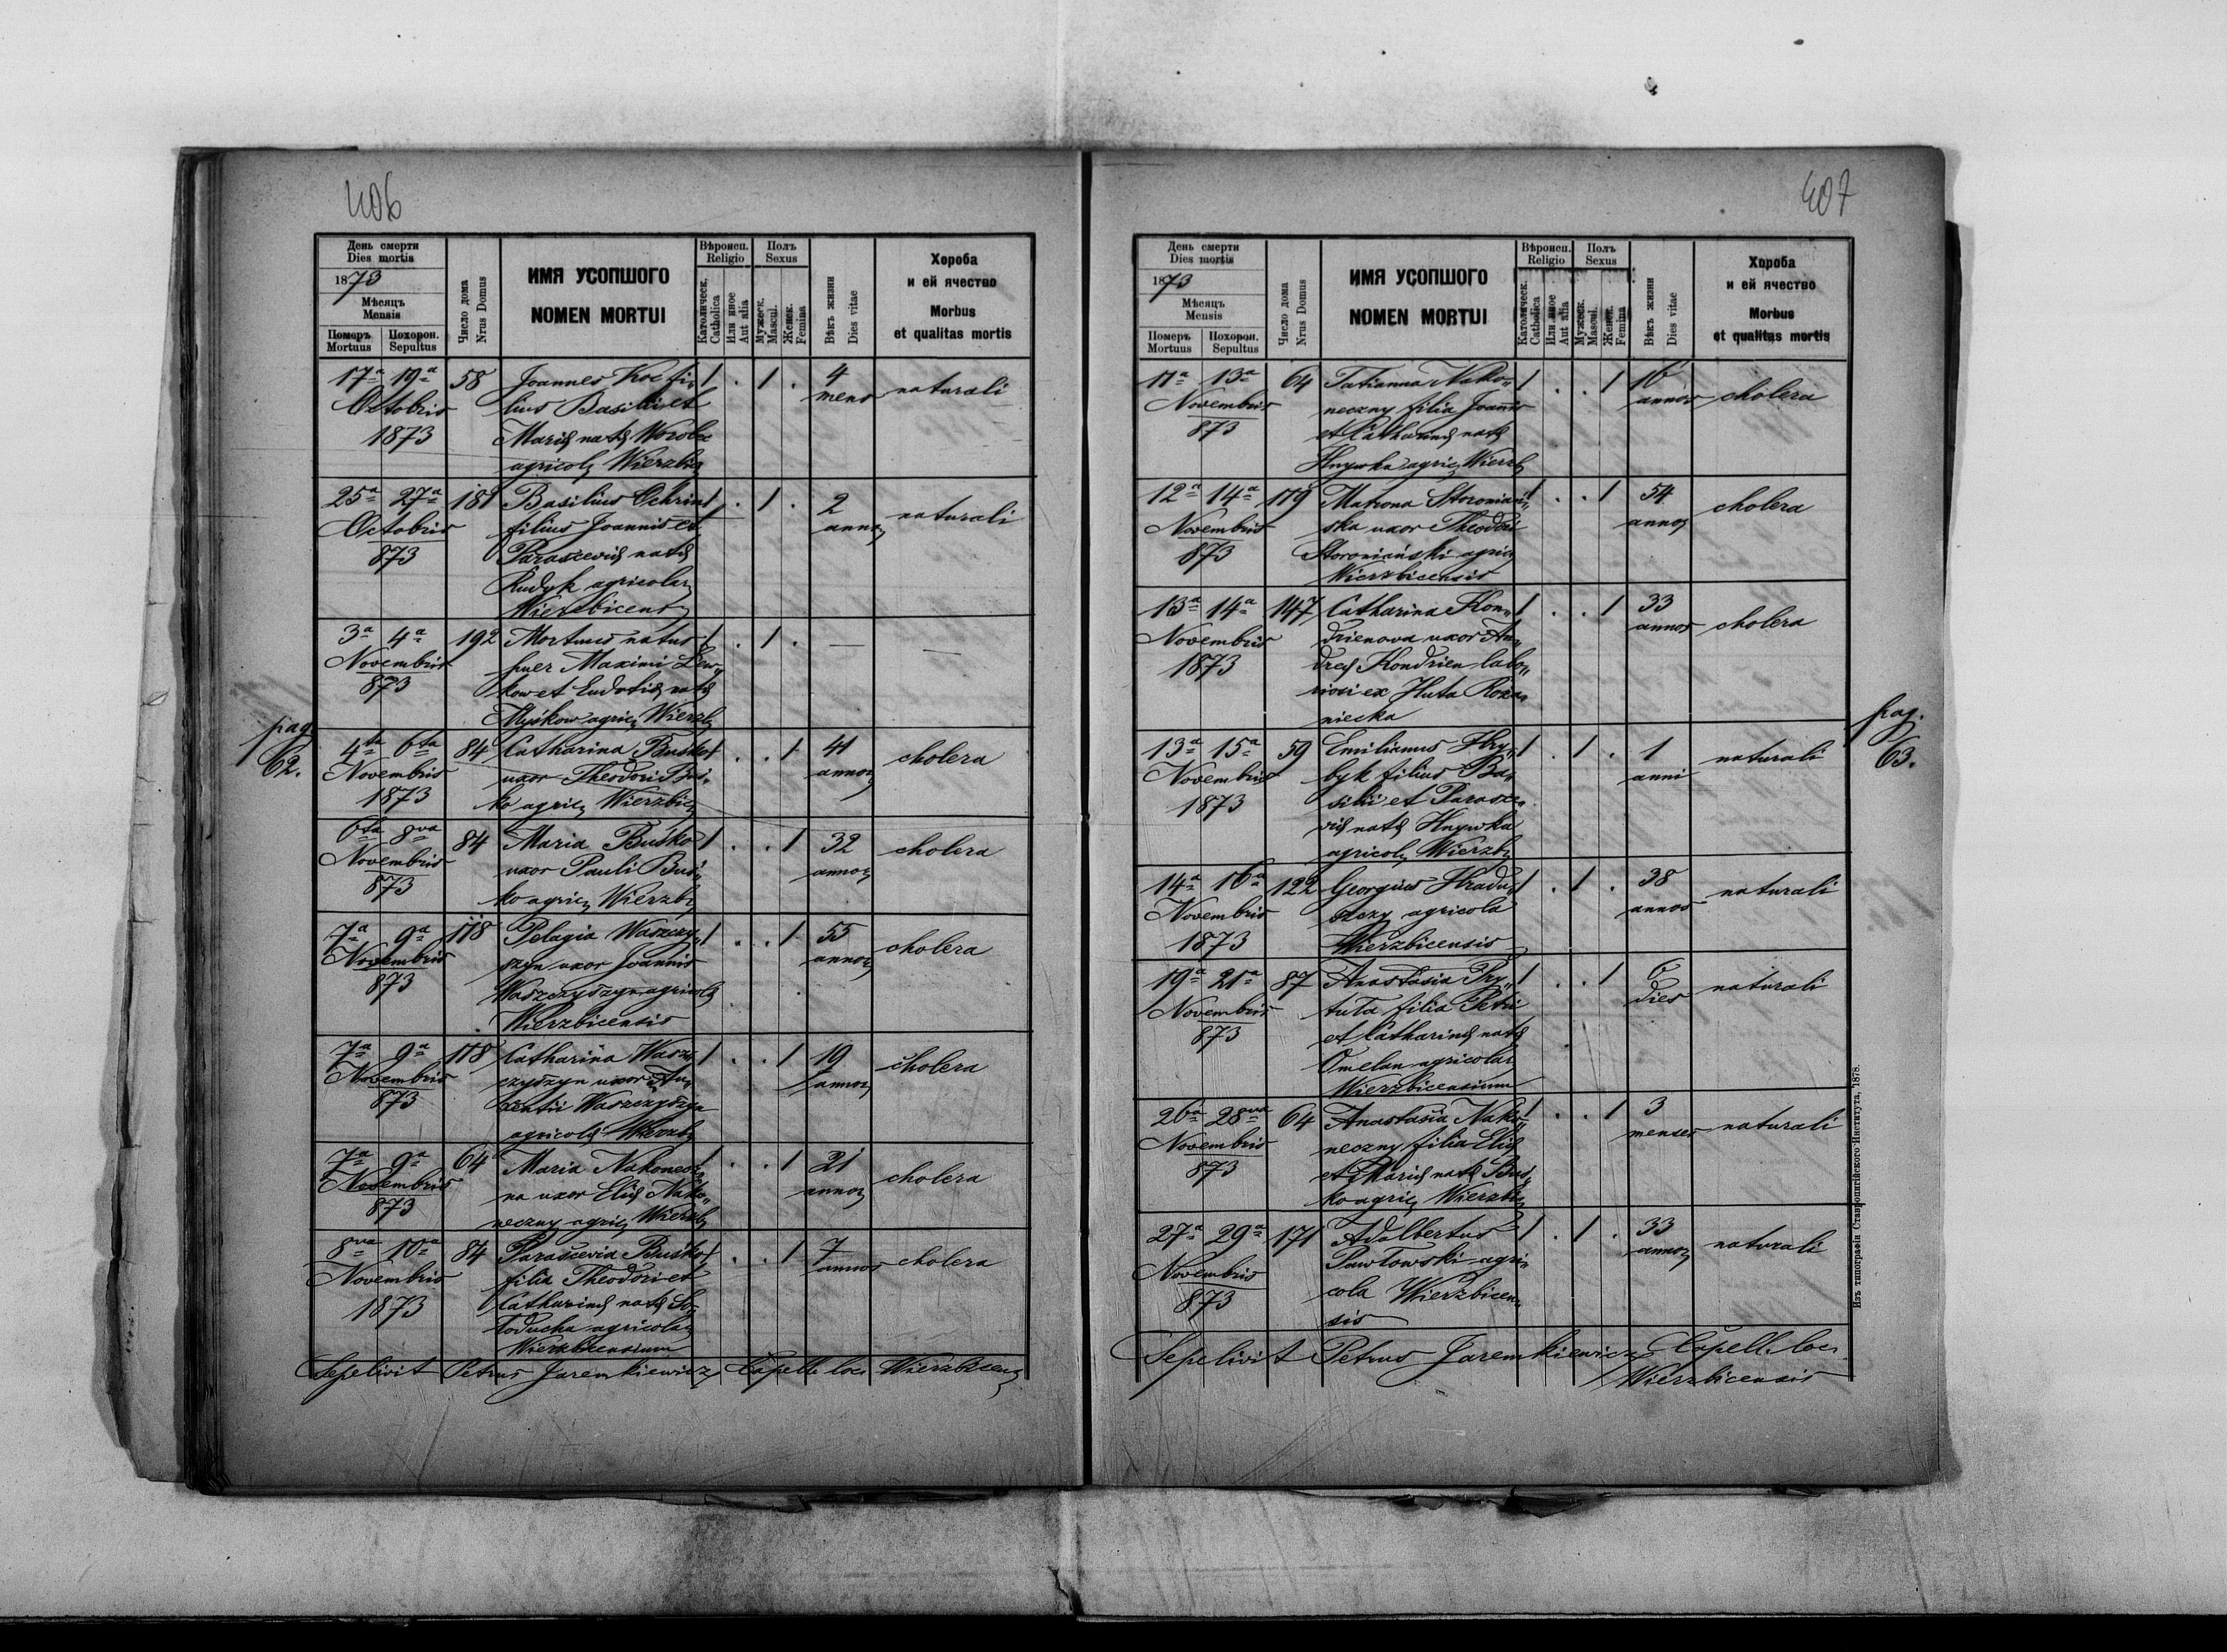 406
День смерти
Dies mortis
1873
Мѣсяцъ
Mensis
Померъ Похорон.
Mortuus Sepultus
Число дома
Nrus Domus
ИМЯ УСОПШОГО
NOMEN MORTUI
Вѣроисп.
Religio
Католическ.
Catholica
Или иное
Aut alia
Полъ
Sexus
Мужеск.
Mascul.
Женск.
Femina
Вѣкъ жизни
Dies vitae
Хороба
и ей ячество
Morbus
et qualitas mortis
17a 19a 58 Joannes Koc fi- 1 . 1 . 4
Octobris lius Basilii et mens naturali
1873 Mariæ natæ Worobec
agricolæ Wierzbic
25a 27a 181 Basilius Ochrim 1 . 1 . 2
Octobris filius Joannis et annor naturali
873 Parasceviæ natæ
Rudyk agricolar
Wierzbicens
3a 4a 192 Mortuus natus 1 . 1 . — —
Novembris puer Maximi Lew„
873 kow et Eudoxiæ natæ
Myśkow agric Wierzb
pag.
62.
4ta 6ta 84 Catharina Buśko 1 . . 1 41
Novembris uxor Theodori Buś- annor cholera
1873 ko agric Wierzbic
6ta 8va 84 Maria Buśko 1 . . 1 32
Novembris uxor Pauli Buś„ annor cholera
873 ko agric Wierzb
7a 9a 118 Pelagia Waszczy„ 1 . . 1 55
Novembris szyn uxor Joannis annor cholera
873 Waszczyszyn agricolæ
Wierzbicensis
7a 9a 118 Catharina Wasz„ 1 . . 1 19
Novembris czyszyn uxor annor cholera
873 Waszczyszyn
agricolæ Wierzb
7a 9a 64 Maria Nakonecz„ 1 . . 1 21
Novembris na uxor Eliæ Nako„ annor cholera
873 neczny agric Wierzb
8va 10a 84 Parascevia Buśko 1 . . 1 7
Novembris filia Theodori et annor cholera
1873 Catharinæ natæ So„
łoducha agricolar
Wierzbicensium
Sepelivit Petrus Jaremkiewicz Capell. loci Wierzbicens
407
День смерти
Dies mortis
1873
Мѣсяцъ
Mensis
Померъ Похорон.
Mortuus Sepultus
Число дома
Nrus Domus
ИМЯ УСОПШОГО
NOMEN MORTUI
Вѣроисп.
Religio
Католическ.
Catholica
Или иное
Aut alia
Полъ
Sexus
Мужеск.
Mascul.
Женск.
Femina
Вѣкъ жизни
Dies vitae
Хороба
и ей ячество
Morbus
et qualitas mortis
11a 13a 64 Tatianna Nako„ 1 . . 1 16
Novembris neczny filia Joannis annor cholera
873 et Catharinæ natæ
Hnywka agric Wierzb
12a 14a 179 Matrona Storoniań„ 1 . . 1 54
Novembris ska uxor Theodori annor cholera
873 Storoniański agric
Wierzbicensis
13a 14a 147 Catharina Kon„ 1 . . 1 33
Novembris drienova uxor An„ annor cholera
1873 dreæ Kondrien labo„
riosi ex Huta Roza„
niecka
pag.
63.
13a 15a 59 Emilianus Hry„ 1 . 1 . 1
Novembris byk filius Ba„ anni naturali
1873 silii et Parasce„
viæ natæ Hnywka
agricolæ Wierzb
14a 16a 122 Georgius Hradu„ 1 . 1 . 38
Novembris szczy agricola annor naturali
1873 Wierzbicensis
19a 21a 87 Anastasia Pry„ 1 . . 1 6
Novembris tuła filia Petri dies naturali
873 et Catharinæ natæ
Omelan agricolar
Wierzbicensium
26a 28va 64 Anastasia Nako„ 1 . . 1 3
Novembris neczny filia Eliæ menses naturali
873 et Mariæ natæ Buś„
ko agric Wierzbic
27a 29a 171 Adalbertus 1 . 1 . 33
Novembris Pawłowski agri„ annor naturali
873 cola Wierzbicen„
sis
Sepelivit Petrus Jaremkiewicz Capell. loci
Wierzbicensis
Изъ типографіи Ставропигійского Института, 1878.